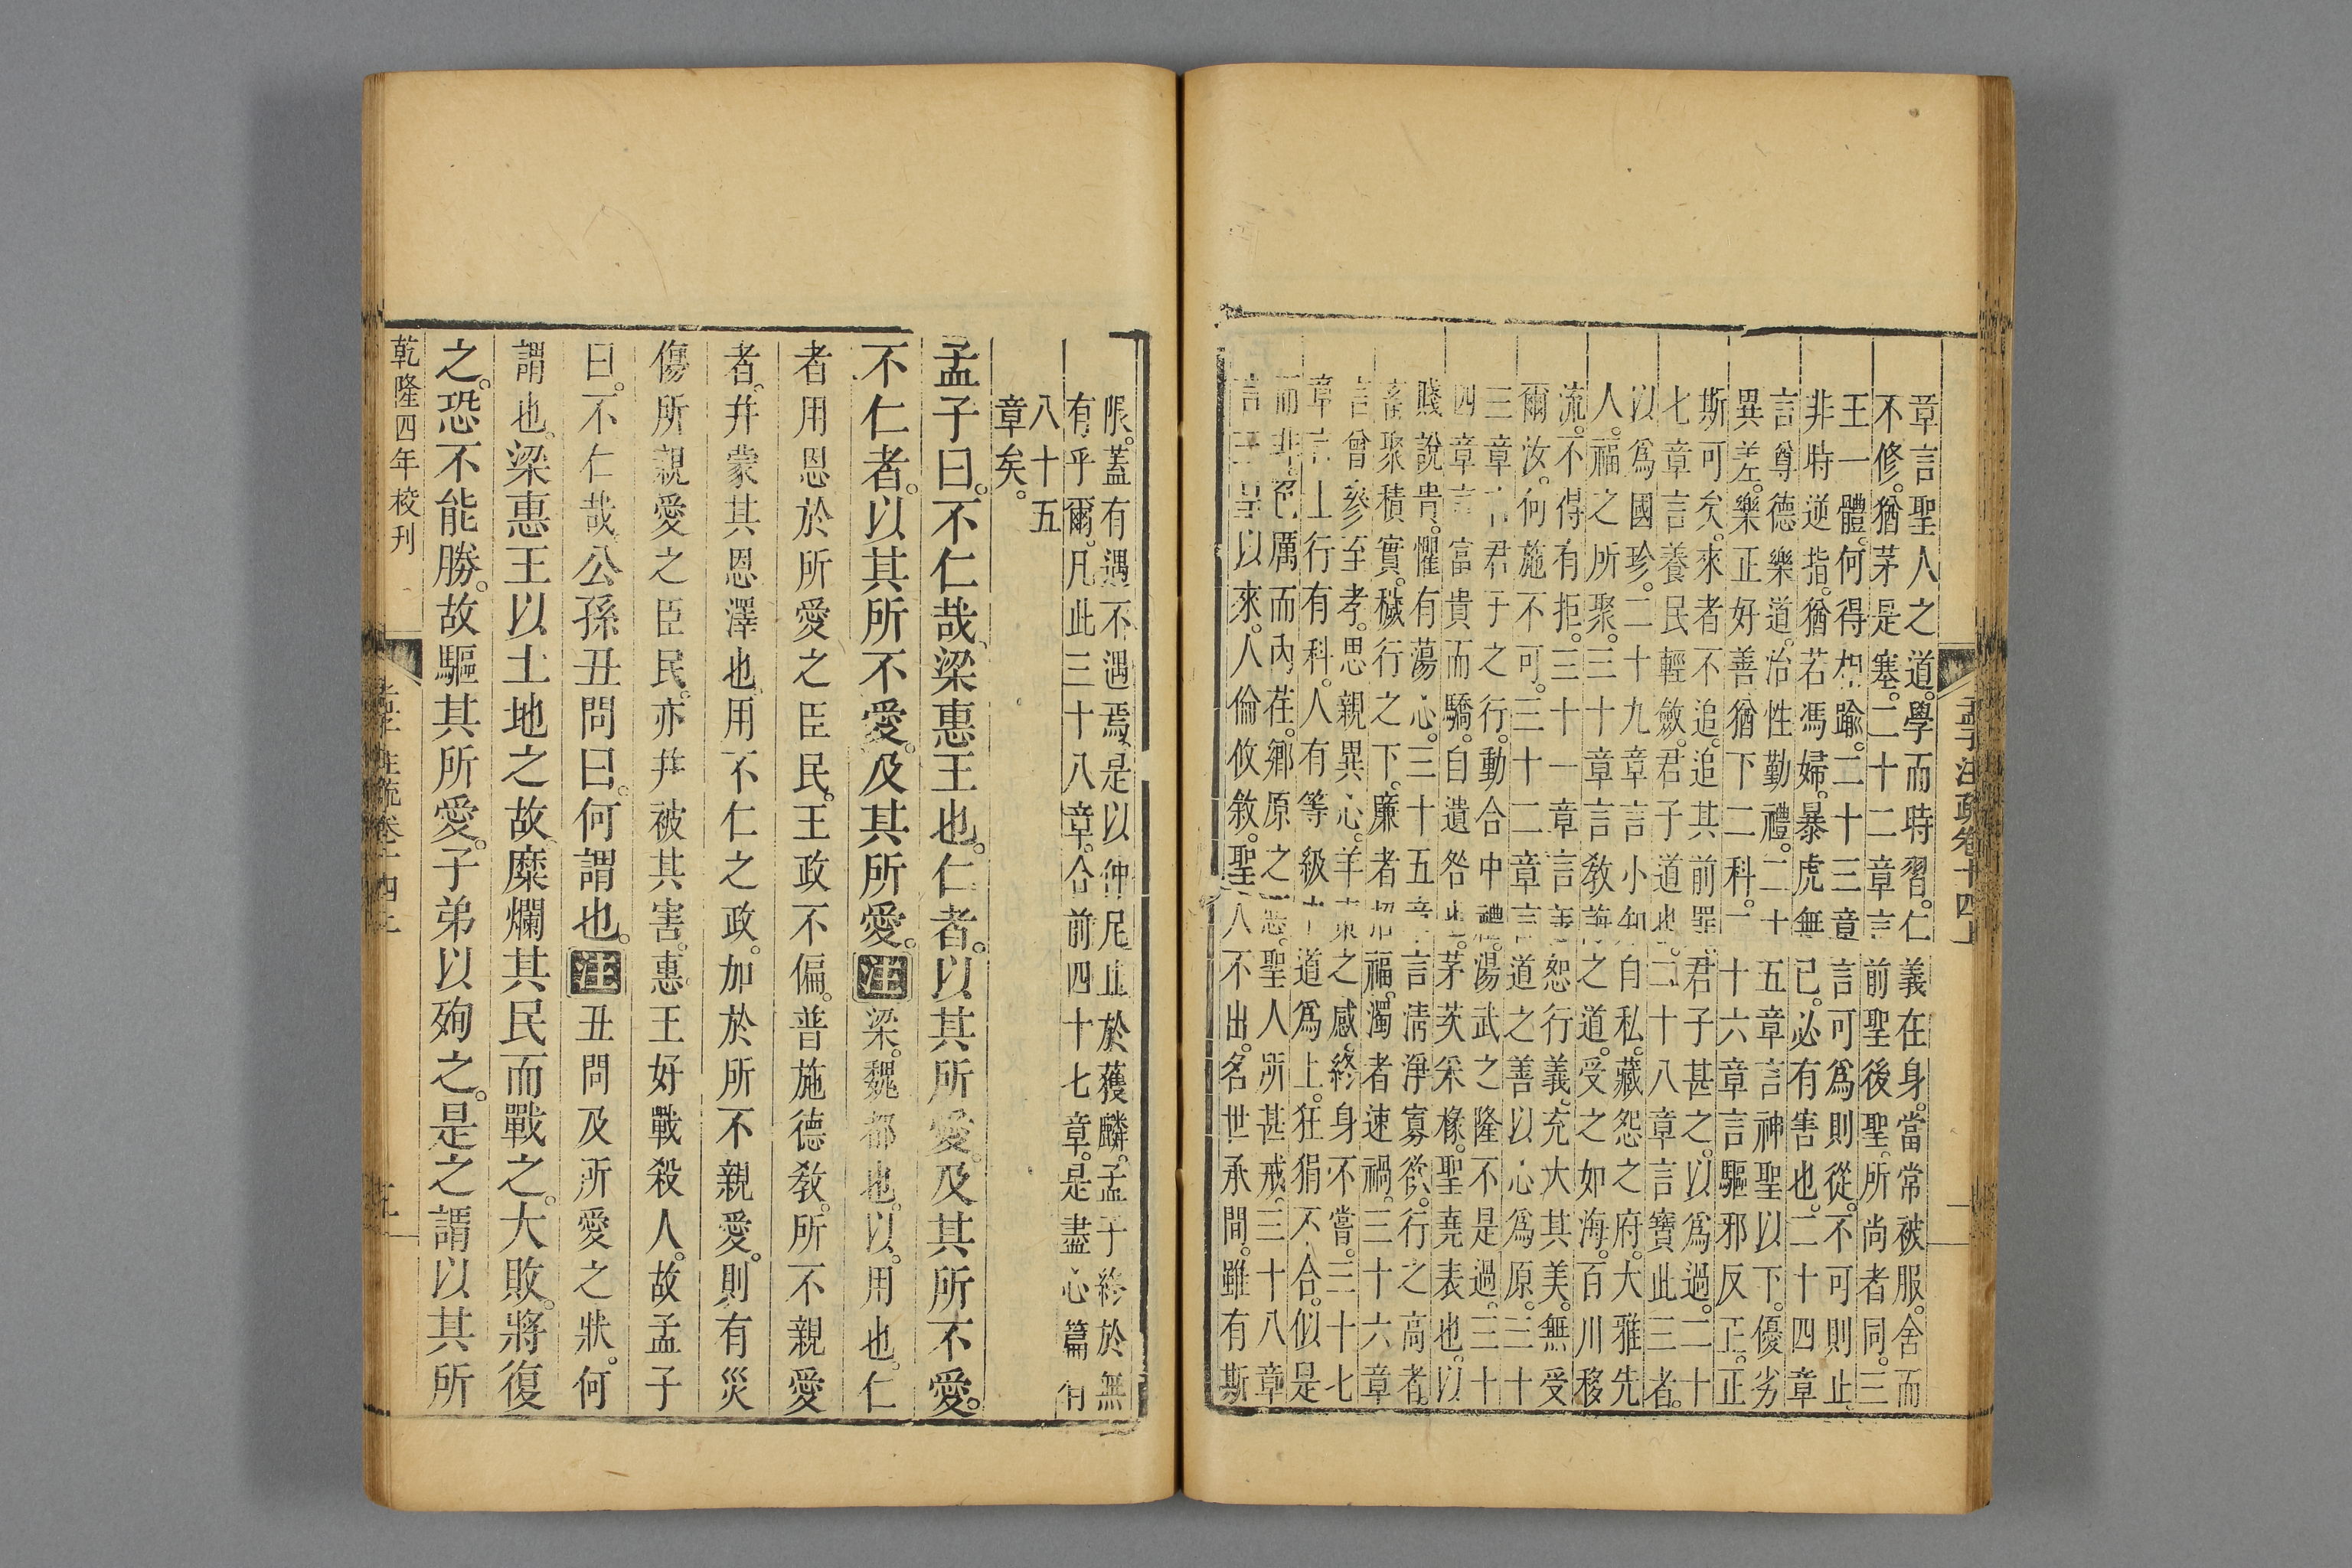 孟子注疏卷十四上
章言聖人之道。學而時習。仁義在身。當常被服。舍而
不修。猶茅是塞。二十二章言前聖後聖。所尚者同。三
王一體。何得相踰。二十三章言可爲則從。不可則止。
非時逆指。猶若馮婦。暴虎無已。必有害也。二十四章
言尊德樂道。治性勤禮。二十五章言神聖以下。優劣
異差。樂正好善猶下二科。二十六章言驅邪反正。正
斯可矣。來者不追。追其前罪。君子甚之。以爲過。二十
七章言養民輕斂。君子道也。二十八章言寶此三者。
以爲國珍。二十九章言小知自私。藏怨之府。大雅先
人。福之所聚。三十章言教誨之道。受之如海。百川移
流。不得有拒。三十一章言善恕行義。充大其美。無受
爾汝。何施不可。三十二章言道之善以心爲原。三十
三章言君子之行。動合中禮。湯武之隆不是過。三十
四章言富貴而驕。自遺咎也。茅茨采椽。聖堯表也。以
賤說貴。懼有蕩心。三十五章言清淨寡欲。行之高者。
畜聚積實。穢行之下。廉者招福。濁者速禍。三十六章
言曾參至孝。思親異心。羊棗之感。終身不嘗。三十七
章言士行有科。人有等級。中道爲上。狂狷不合。似是
而非。色厲而內荏。鄉原之惡。聖人所甚戒。三十八章
言三皇以來。人倫攸敘。聖人不出。名世承間。雖有斯
限。蓋有遇不遇焉。是以仲尼止於獲麟。孟子終於無
有乎爾。凡此三十八章。合前四十七章。是盡心篇有
八十五
章矣。
孟子曰。不仁哉。梁惠王也。仁者。以其所愛。及其所不愛。
不仁者。以其所不愛。及其所愛。注梁。魏都也。以。用也。仁
者用恩於所愛之臣民。王政不偏。普施德敎。所不親愛
者。幷蒙其恩澤也。用不仁之政。加於所不親愛。則有災
傷所親愛之臣民。亦幷被其害。惠王好戰殺人。故孟子
曰。不仁哉。公孫丑問曰。何謂也。注丑問及所愛之狀。何
謂也。梁惠王以土地之故。糜爛其民而戰之。大敗。將復
之。恐不能勝。故驅其所愛。子弟以殉之。是之謂以其所
乾隆四年校刊
孟子注疏卷十四上